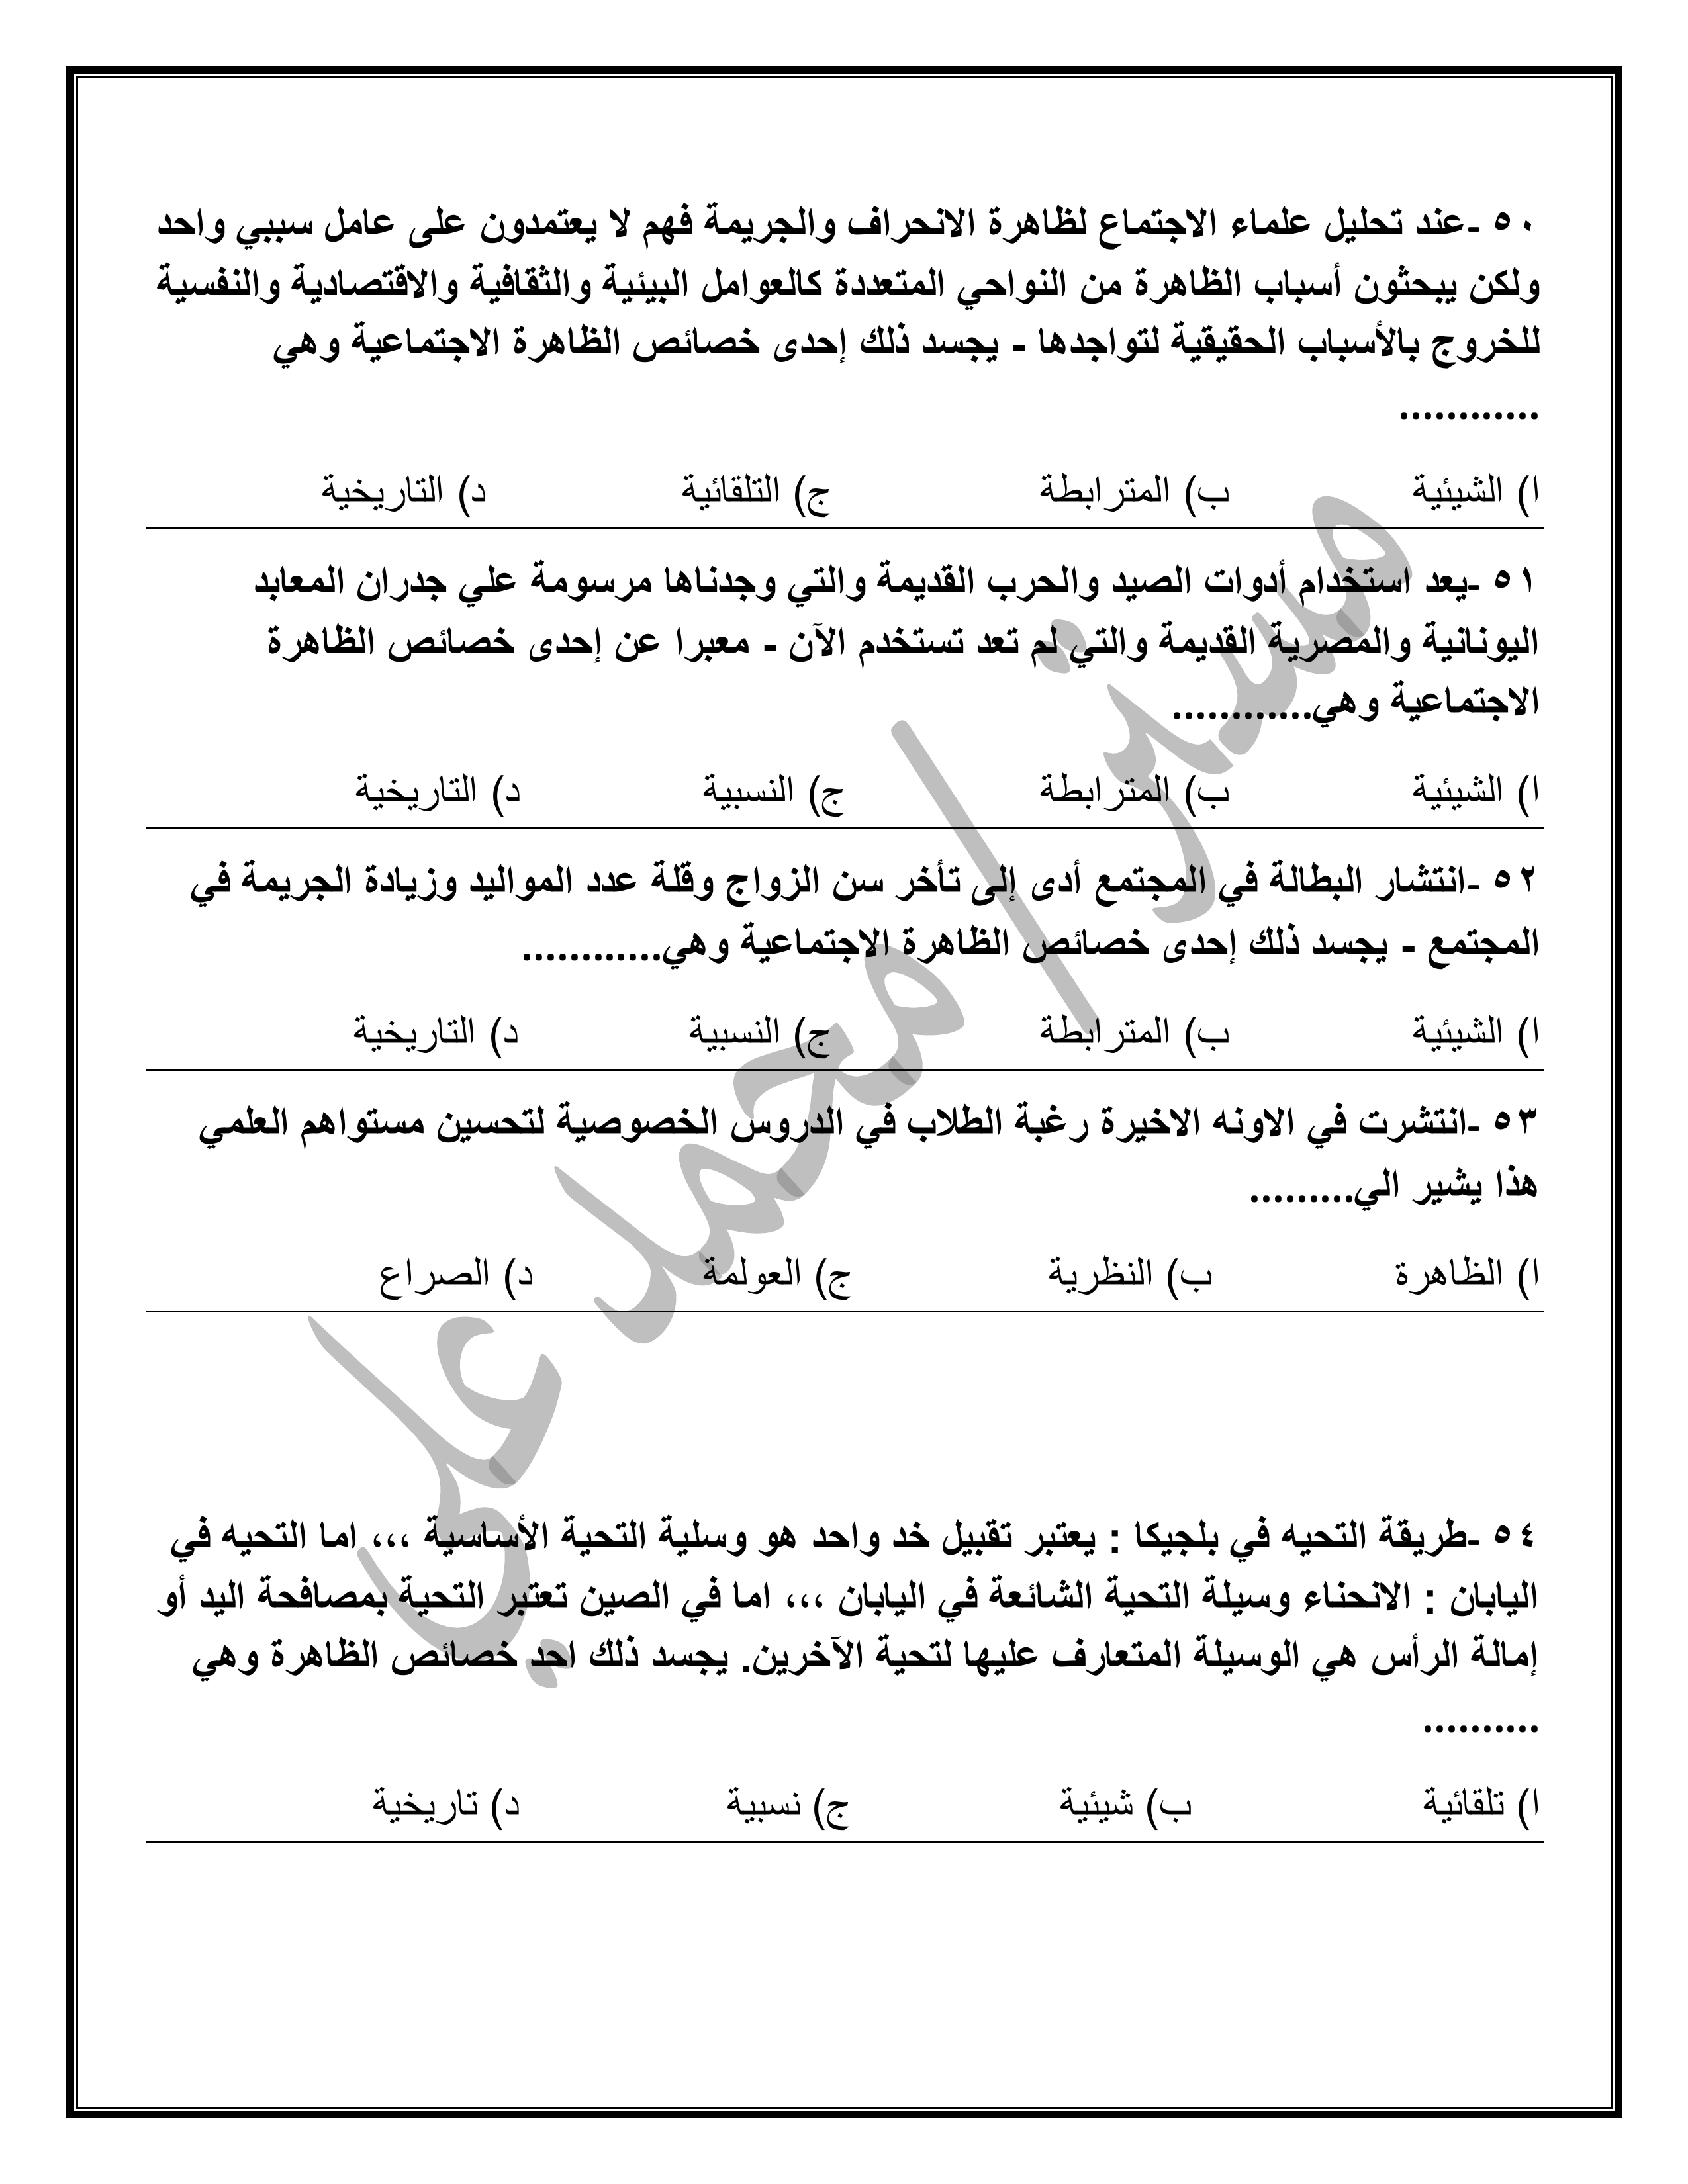 ٥٠ -عند تحليل علماء الاجتماع لظاهرة الانحراف والجريمة فهم لا يعتمدون على عامل سببي واحد
ولكن يبحثون أسباب الظاهرة من النواحي المتعددة كالعوامل البيئية والثقافية والاقتصادية والنفسية
للخروج بالأسباب الحقيقية لتواجدها - يجسد ذلك إحدى خصائص الظاهرة الاجتماعية وهي
............
ا) الشيئية ب) المترابطة ج) التلقائية د) التاريخية
٥١ -يعد استخدام أدوات الصيد والحرب القديمة والتي وجدناها مرسومة علي جدران المعابد
اليونانية والمصرية القديمة والتي لم تعد تستخدم الآن - معبرا عن إحدى خصائص الظاهرة
الاجتماعية وهي............
ا) الشيئية ب) المترابطة ج) النسبية د) التاريخية
٥٢ -انتشار البطالة في المجتمع أدى إلى تأخر سن الزواج وقلة عدد المواليد وزيادة الجريمة في
المجتمع - يجسد ذلك إحدى خصائص الظاهرة الاجتماعية وهي............
ا) الشيئية ب) المترابطة ج) النسبية د) التاريخية
٥٣ -انتشرت في الاونه الاخيرة رغبة الطلاب في الدروس الخصوصية لتحسين مستواهم العلمي
هذا يشير الي.........
ا) الظاهرة ب) النظرية ج) العولمة د) الصراع
٥٤ -طريقة التحيه في بلجيكا : يعتبر تقبيل خد واحد هو وسلية التحية الأساسية ،،، اما التحيه في
اليابان : الانحناء وسيلة التحية الشائعة في اليابان ،،، اما في الصين تعتبر التحية بمصافحة اليد أو
إمالة الرأس هي الوسيلة المتعارف عليها لتحية الآخرين. يجسد ذلك احد خصائص الظاهرة وهي
..........
ا) تلقائية ب) شيئية ج) نسبية د) تاريخية
مستر/ محمد علي